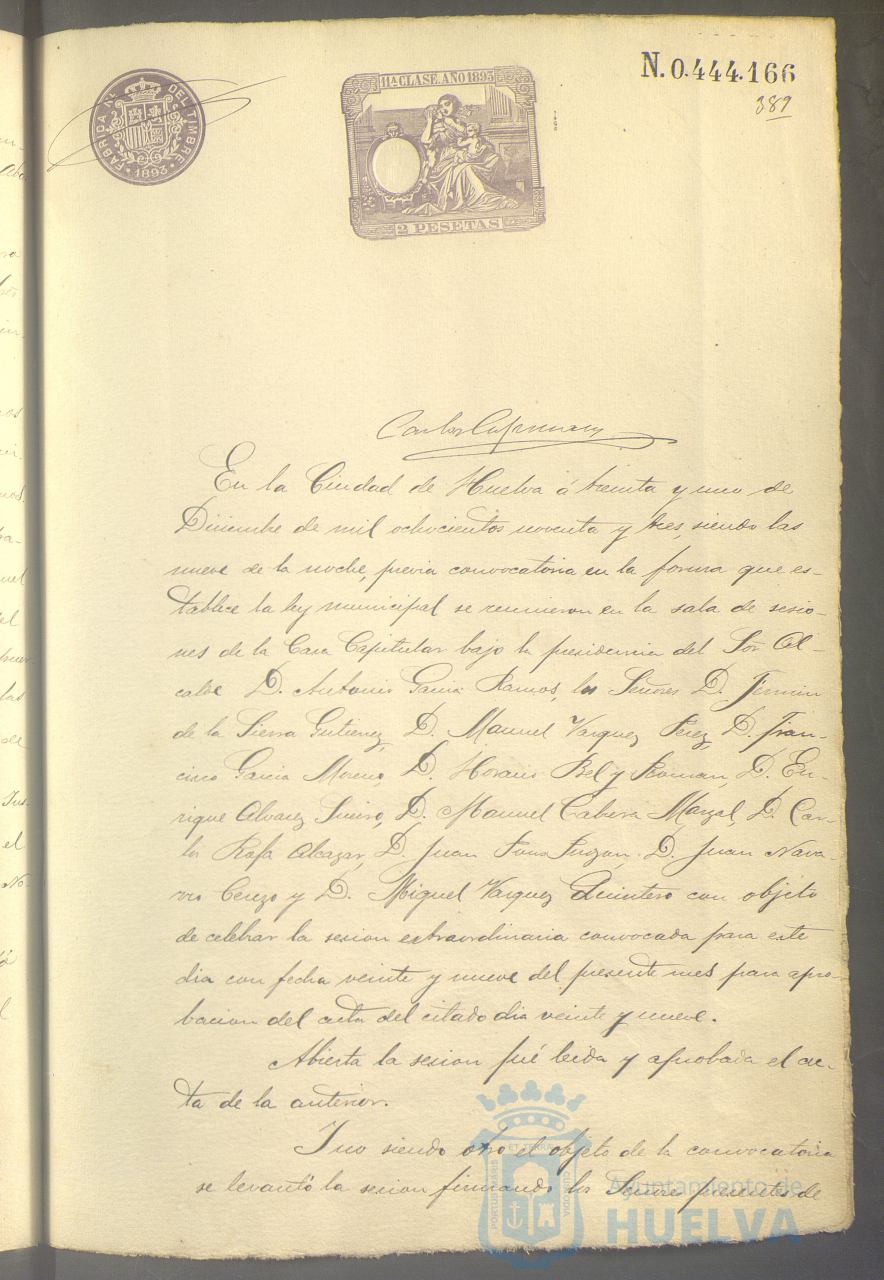 FABRICA N. DEL TIMBRE
· 1893 ·
11ª CLASE. AÑO 1893
2 PESETAS
N. 0.444.166
389
En la Ciudad de Huelva á treinta y uno de
Diciembre de mil ochocientos noventa y tres, siendo las
nueve de la noche, previa convocatoria en la forma que es-
tablece la ley municipal se reunieron en la sala de sesio-
nes de la Casa Capitular bajo la presidencia del Sor Al-
calde D. Antonio Garcia Ramos, los Señores D. Fermin
de la Sierra Gutierrez, D. Manuel Vazquez Perez, D. Fran-
cisco Garcia Moreno, D. Horacio Bel y Roman, D. En-
rique Alvarez Sueiro, D. Manuel Cabera Marzal, D. Car-
los Rafa Alcazar, D. Juan D. Juan Nava-
rro Cerezo y D. Miguel Vazquez Quintero con objeto
de celebrar la sesion extraordinaria convocada para este
dia con fecha veinte y nueve del presente mes para apro-
bacion del acta del citado dia veinte y nueve.
Abierta la sesion fué leida y aprobada el ac-
ta de la anterior.
Y no siendo otro el objeto de la convocatoria
se levantó la sesion firmando los Señores presentes de
Ayuntamiento de
HUELVA